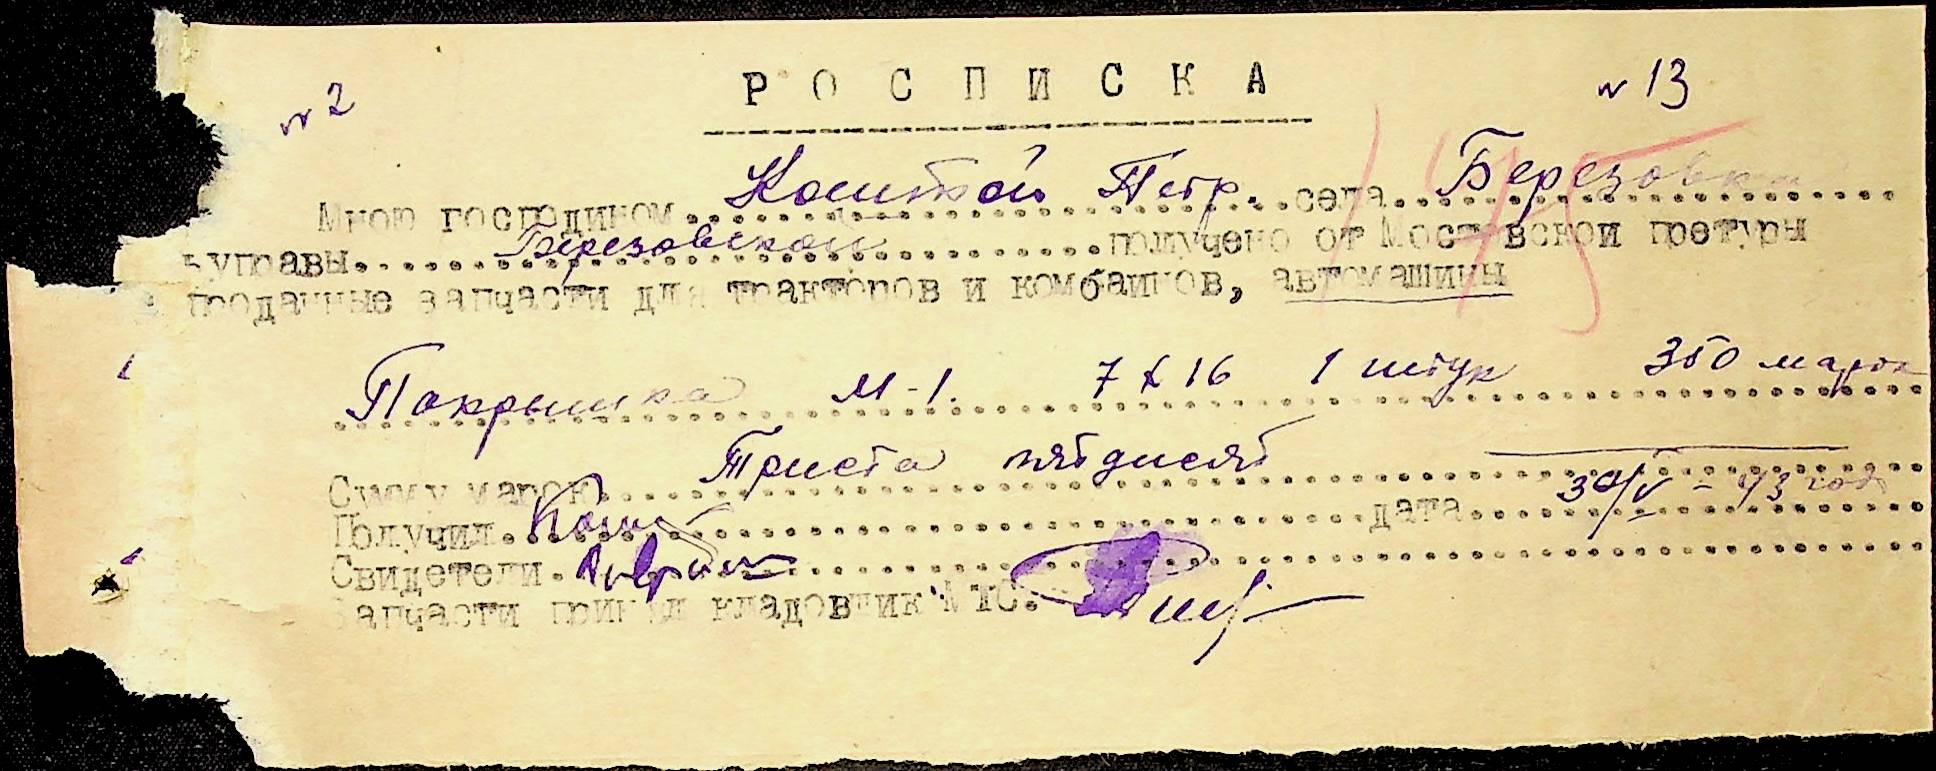 Р О С П И С К А
№ 2
№ 13
Мною господином Коштой Петр. села Березовка
управы Березовской получено от Мостовской претуры
проданные запчасти для тракторов и комбайнов, автомашины
Покрышка М-1. 7 х 16 1 штук 350 марок
Сумму марок Триста пятдисят
Получил дата 30/V - 43 год
Свидетели
Запчасти принял кладовщик МТС.